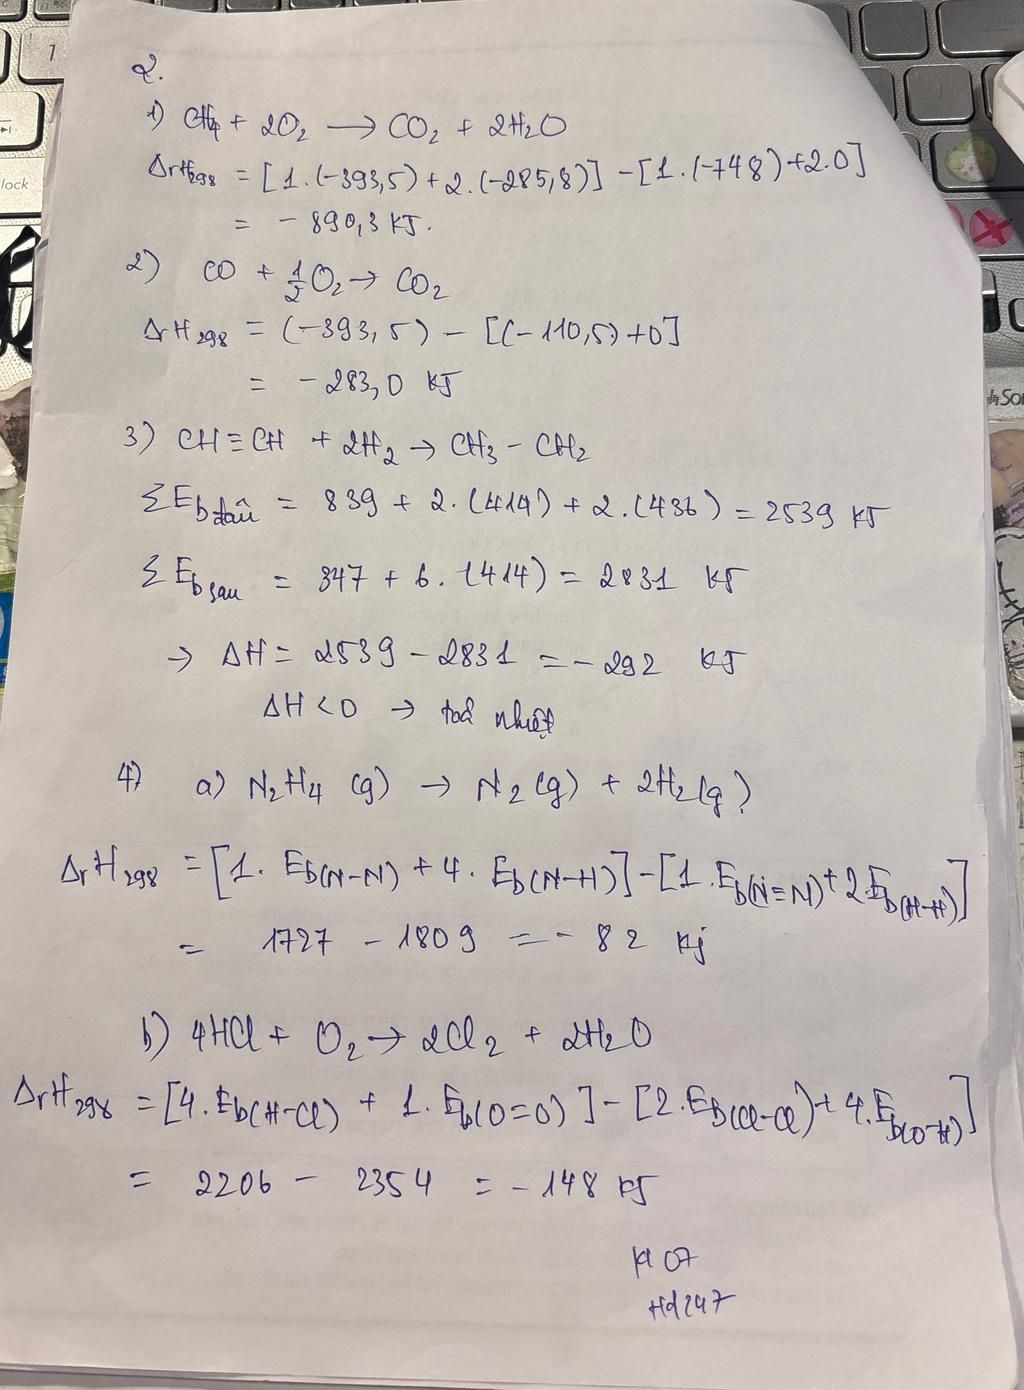 2.
1) CH4 + 2O2 → CO2 + 2H2O
ΔrH298 = [1.(-393,5) + 2.(-285,8)] - [1.(-748) + 2.0]
= - 890,3 KJ.
2) CO + 1/2 O2 → CO2
ΔrH298 = (-393,5) - [(-110,5) + 0]
= - 283,0 KJ
3) CH≡CH + 2H2 → CH3 - CH2
ΣEb đầu = 839 + 2.(414) + 2.(436) = 2539 KJ
ΣEb sau = 347 + 6.(414) = 2831 KJ
→ ΔH = 2539 - 2831 = - 292 KJ
ΔH < 0 → toả nhiệt
4) a) N2H4 (g) → N2 (g) + 2H2 (g)
ΔrH298 = [1. Eb(N-N) + 4. Eb(N-H)] - [1. Eb(N≡N) + 2.Eb(H-H)]
= 1727 - 1809 = - 82 kj
b) 4HCl + O2 → 2Cl2 + 2H2O
ΔrH298 = [4. Eb(H-Cl) + 1. Eb(O=O)] - [2. Eb(Cl-Cl) + 4. Eb(O-H)]
= 2206 - 2354 = - 148 KJ
07
Hd247
lock
1